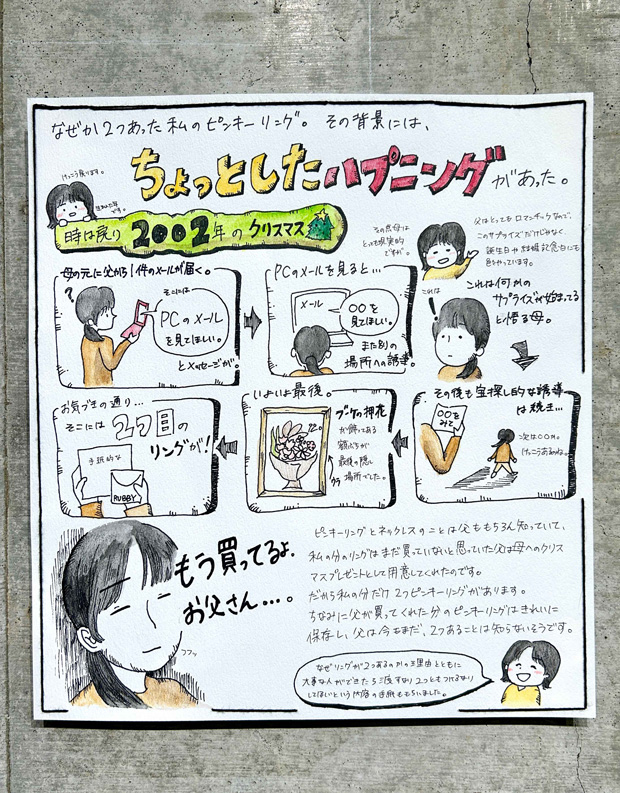 なぜか2つあった私のピンキーリング。その背景には、
ちょっとしたハプニング
があった。
けっこう戻ります。
時は戻り2002年のクリスマス
その点母は
とっても現実的
ですが。
父はとってもロマンチックなので、
このサプライズだけじゃなく
誕生日や結婚記念日にも
色々やっています。
母の元に父から1件のメールが届く。
?
そこには
PCのメール
を見てほしい。
とメッセージが。
PCのメールを見ると…
メール
○○を
見てほしい。
また別の
場所への誘導。
これは
!
これは何かの
サプライズが始まってる
と悟る母。
その後も宝探し的な誘導
は続き…
○○を
みて。
次は○○か。
けっこうあるわね。
いよいよ最後。
ブーケの押花
が飾ってある
額ぶちが
最後の隠し
場所でした。
ウラ
お気づきの通り…
そこには2つ目の
リングが!
手紙的な
RUBBY
もう買ってるよ、
お父さん…。
フフッ
ピンキーリングとネックレスのことは父ももちろん知っていて、
私の分のリングはまだ買っていないと思っていた父は母へのクリス
マスプレゼントとして用意してくれたのです。
だから私の分だけ2つピンキーリングがあります。
ちなみに父が買ってくれた分のピンキーリングはきれいに
保存し、父は今もまだ、2つあることは知らないそうです。
なぜリングが2つあるのかの理由とともに
大事な人ができたら渡すなり2つともつけるなり
してほしいという内容の手紙ももらいました。